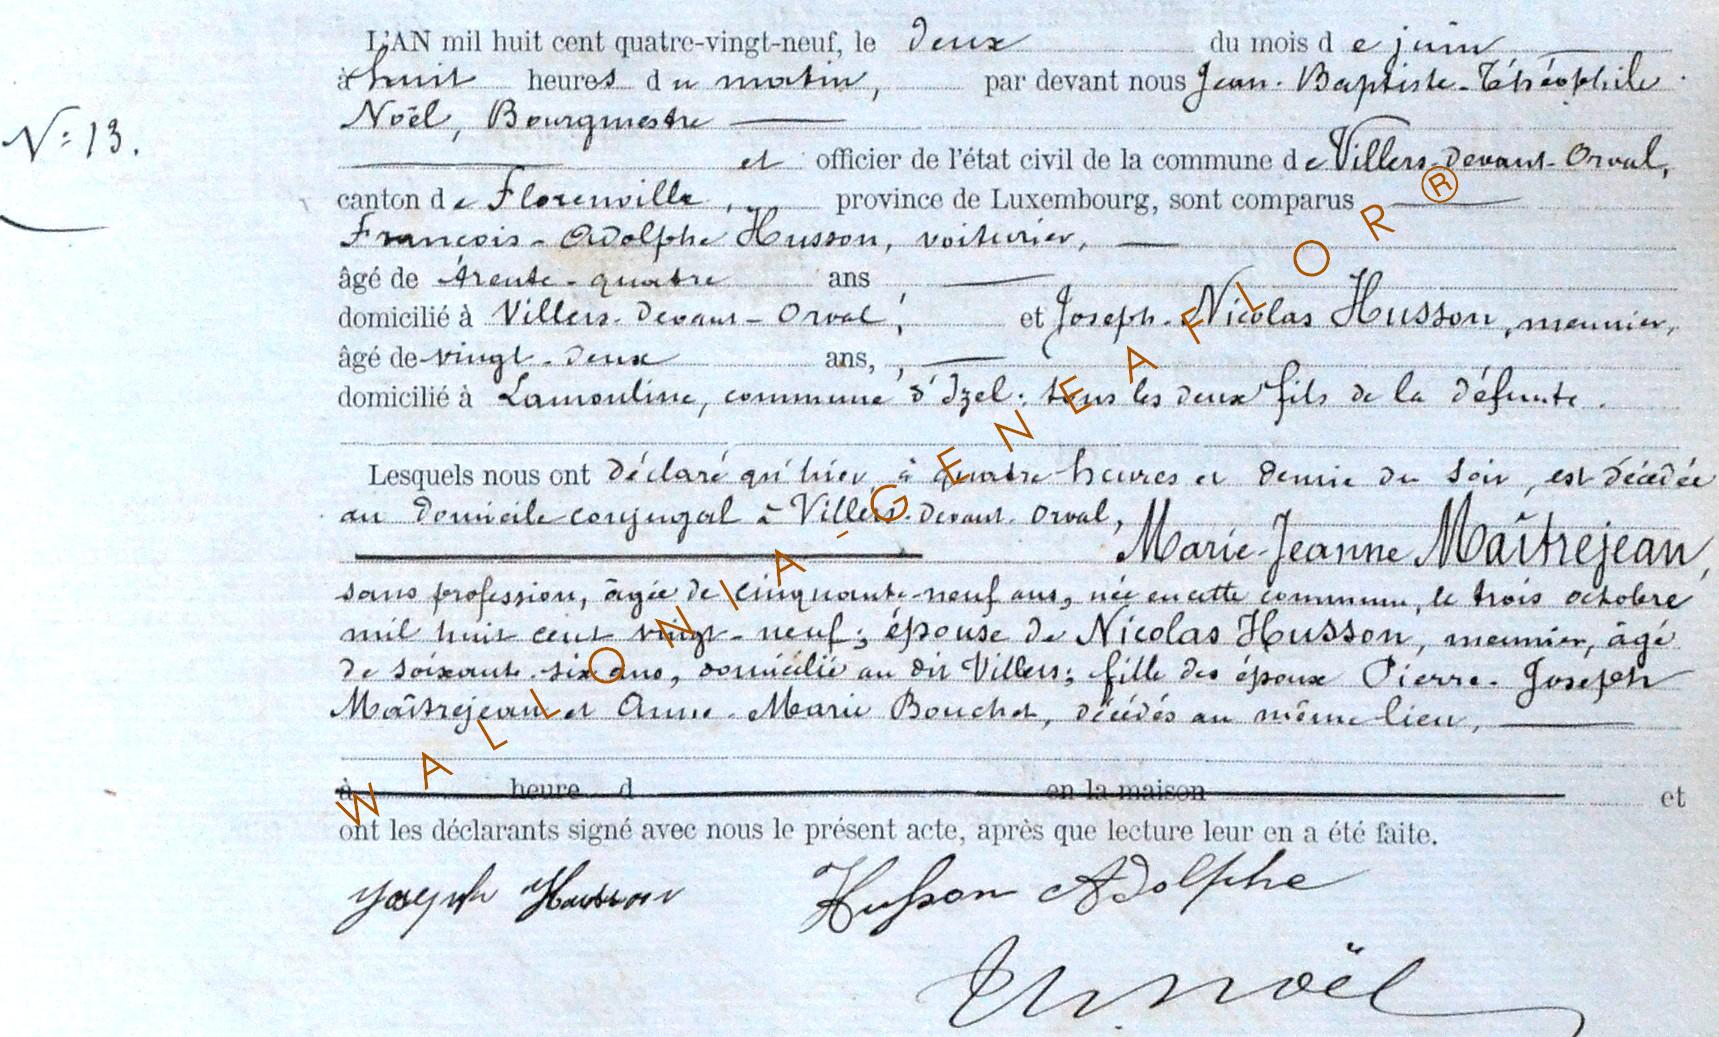 L'AN mil huit cent quatre-vingt-neuf, le deux du mois de juin
à huit heures du matin, par devant nous Jean-Baptiste-Théophile
Noël, Bourgmestre
N: 13.
et officier de l'état civil de la commune de Villers-Devant-Orval,
canton de Florenville, province de Luxembourg, sont comparus
François-Adolphe Husson, voiturier,
âgé de trente-quatre ans
domicilié à Villers-Devant-Orval, et Joseph-Nicolas Husson, meunier,
âgé de vingt-deux ans,
domicilié à Lamouline, commune d'Izel; tous les deux fils de la défunte.
Lesquels nous ont déclaré qu'hier, à quatre heures et demie du soir, est décédée
au domicile conjugal à Villers-Devant-Orval, Marie-Jeanne Maîtrejean,
sans profession, âgée de cinquante-neuf ans, née en cette commune, le trois octobre
mil huit cent vingt-neuf; épouse de Nicolas Husson, meunier, âgé
de soixante-six ans, domicilié au dit Villers; fille des époux Pierre-Joseph
Maîtrejean et Anne-Marie Bouchet, décédés au même lieu,
à heure d en la maison et
ont les déclarants signé avec nous le présent acte, après que lecture leur en a été faite.
Joseph Husson Husson Adolphe
Th Noël
WALLONIA-GENEAFLOR®